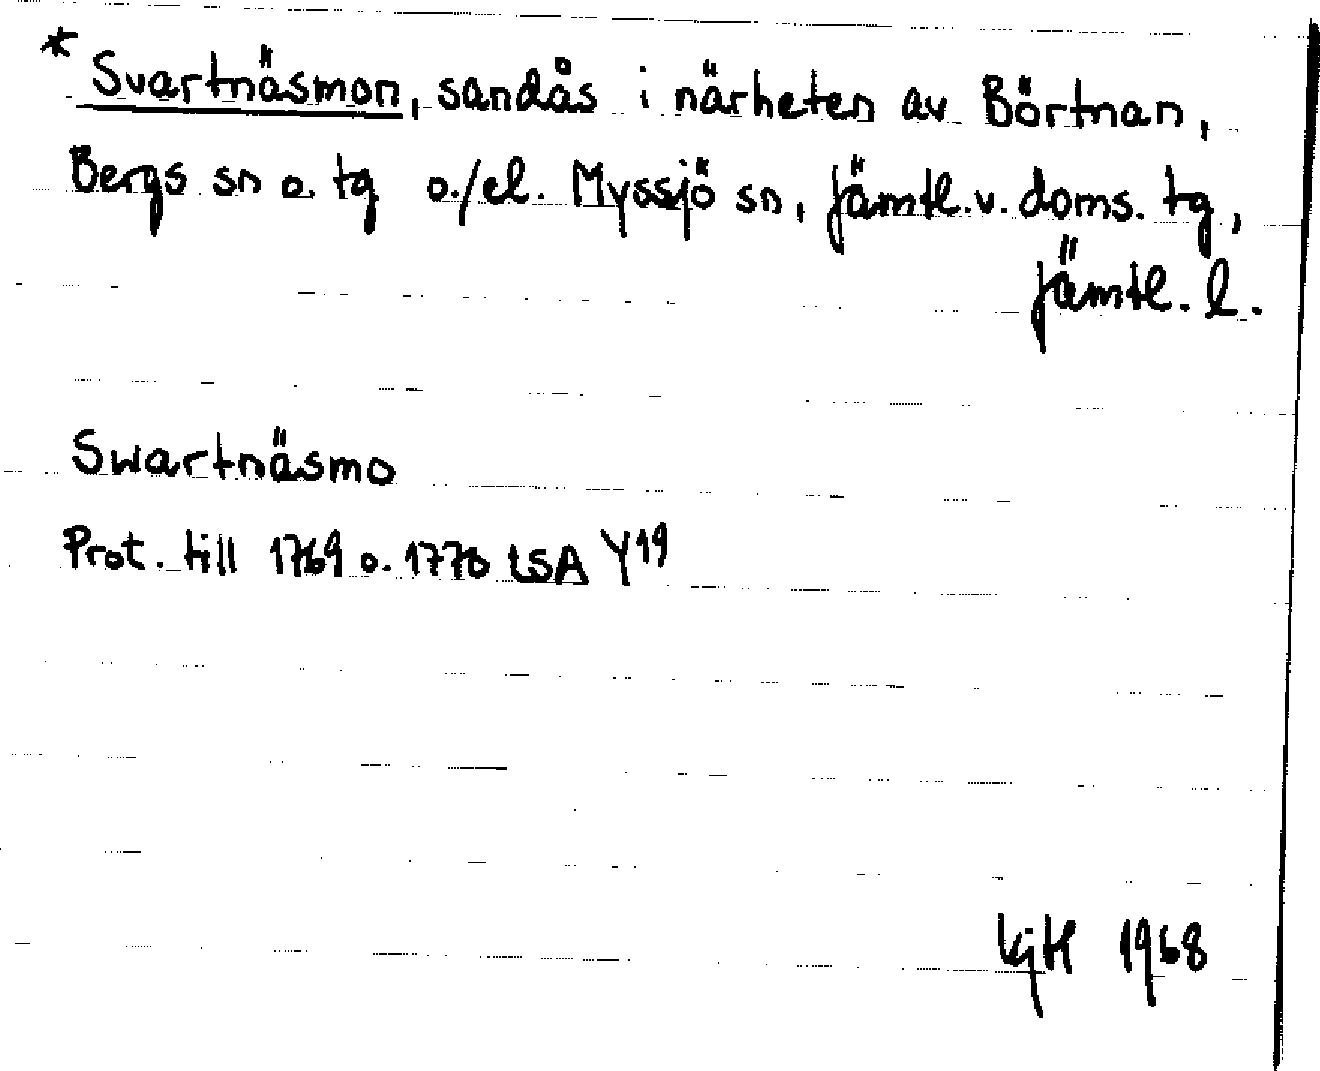 * Svartnäsmon, sandås i närheten av Börtnan,
Bergs sn o. tg o./el. Myssjö sn, Jämtl.v. doms. tg,
Jämtl. l.
Swartnäsmo
Prot. till 1769 o. 1770 LSA Y19
1968